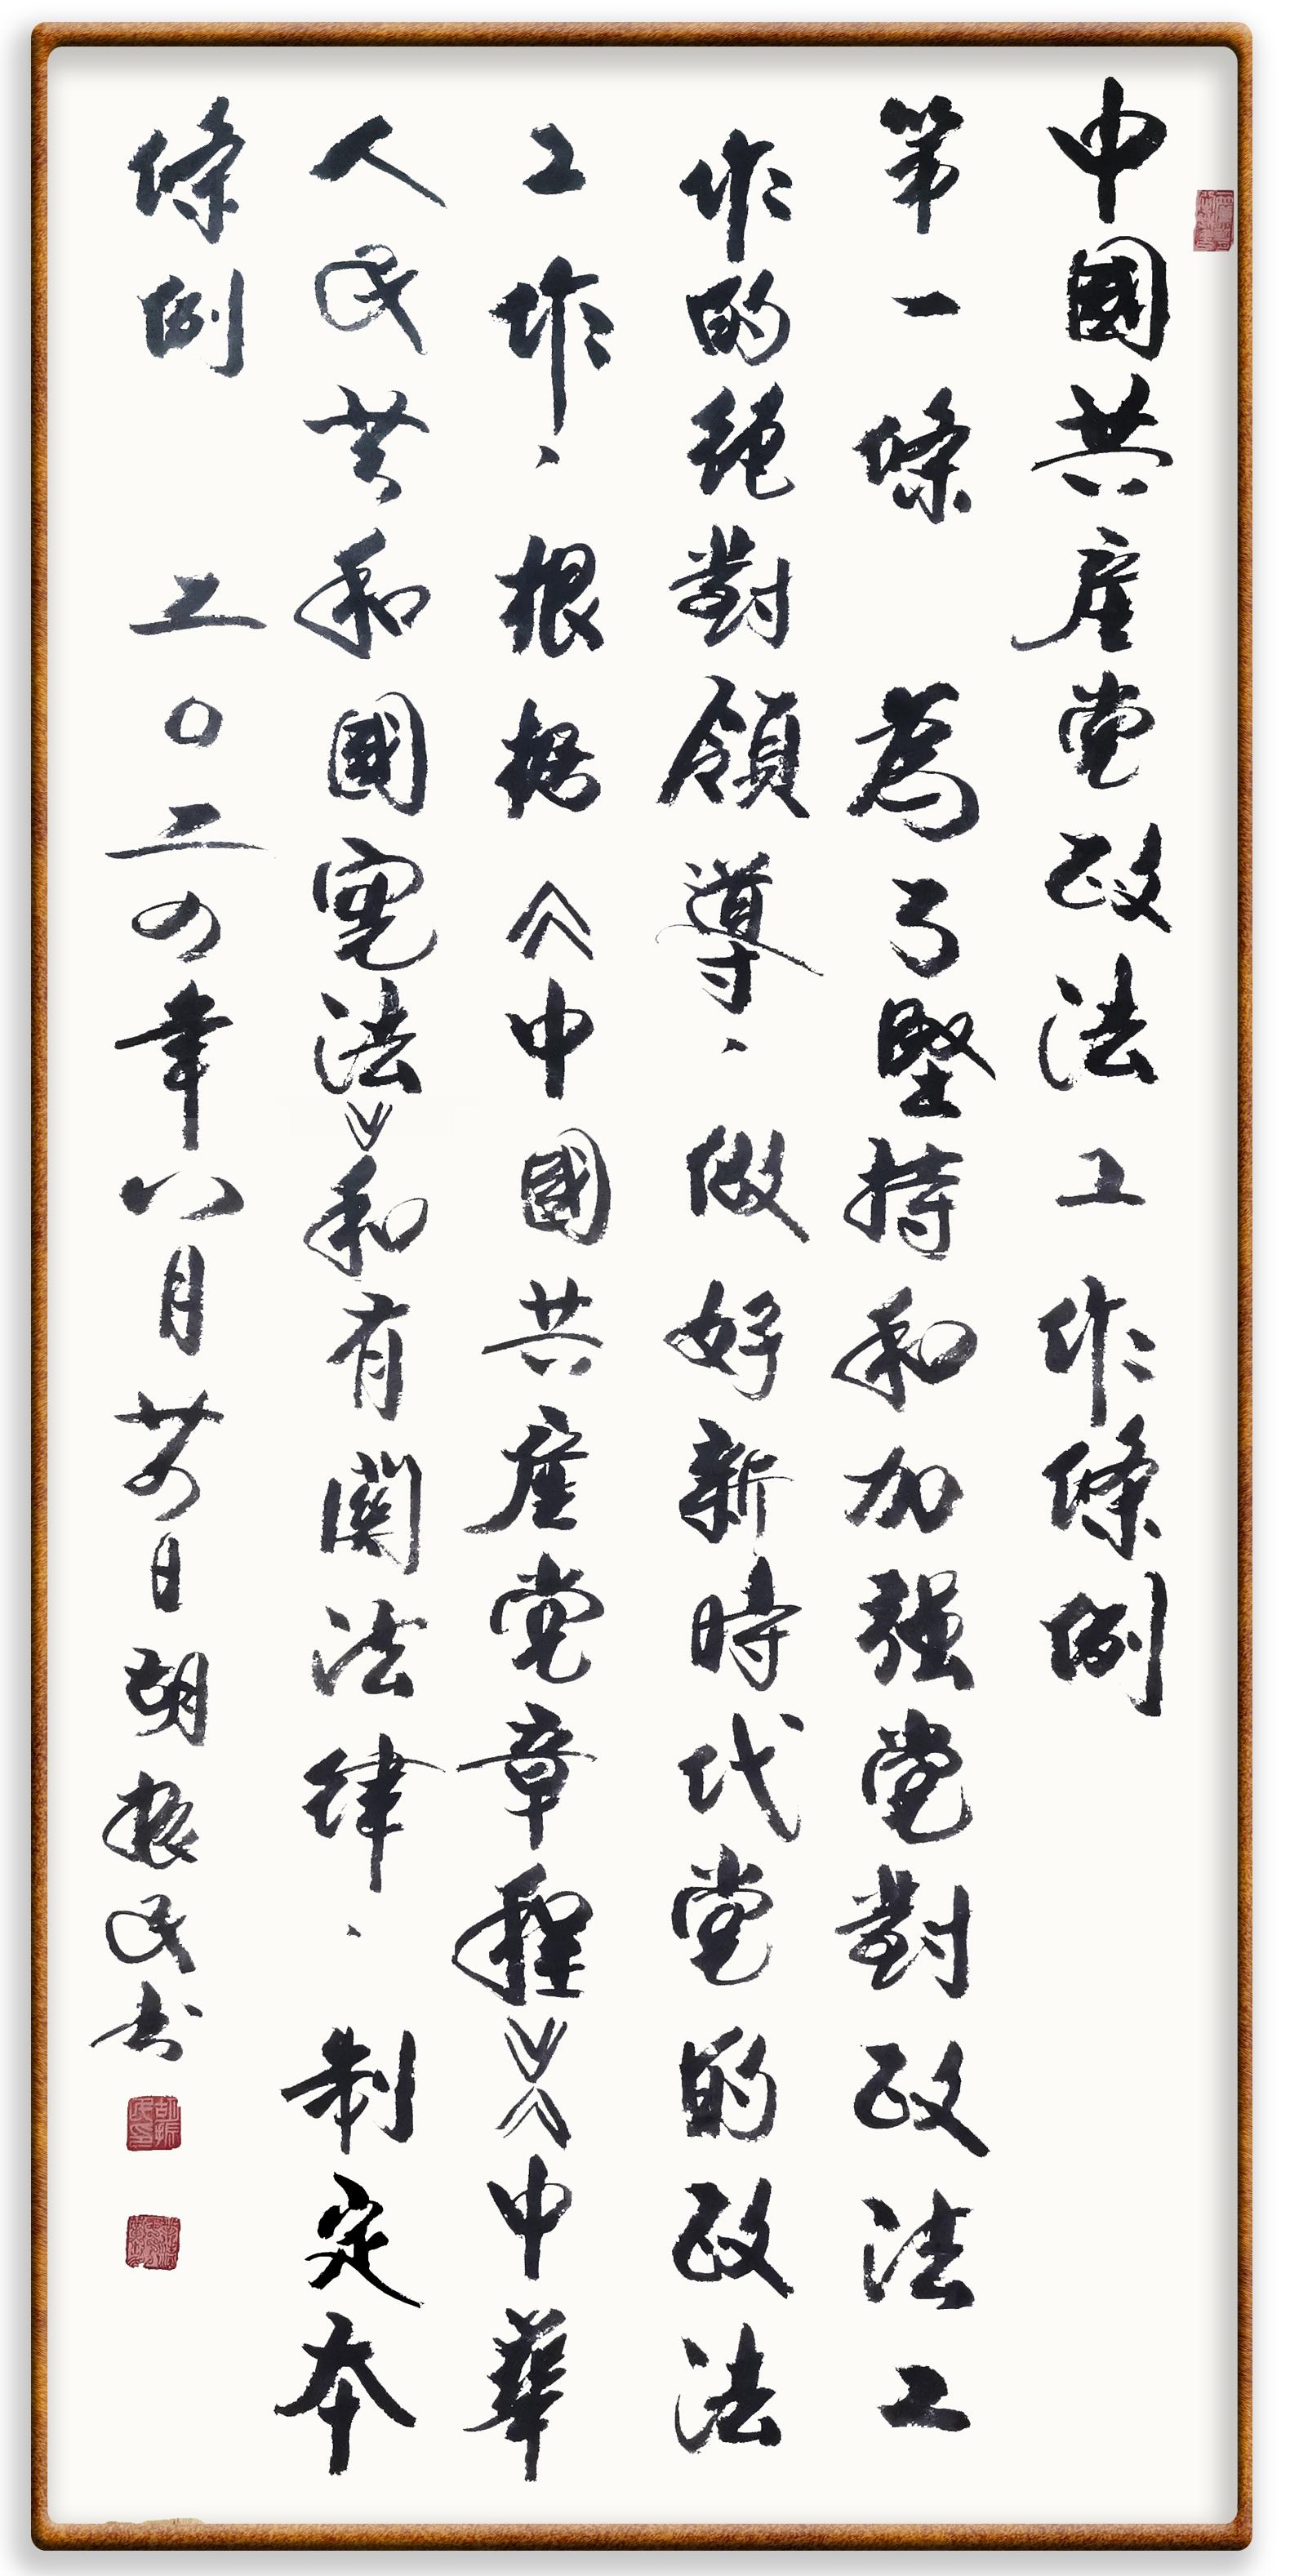 中國共產党政法工作條例
第一條 為了堅持和加强党對政法工
作的絕對領導、做好新時代党的政法
工作、根據《中國共產党章程》《中華
人民共和國憲法》和有関法律、制定本
條例 二〇二四年八月廿四日胡振民书